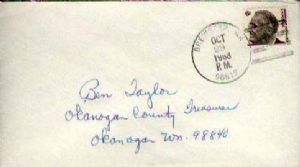 OCT
29
1968
P.M.
98812
Ben Taylor
Okanogan County Treasurer
Okanogan Wn. 98840